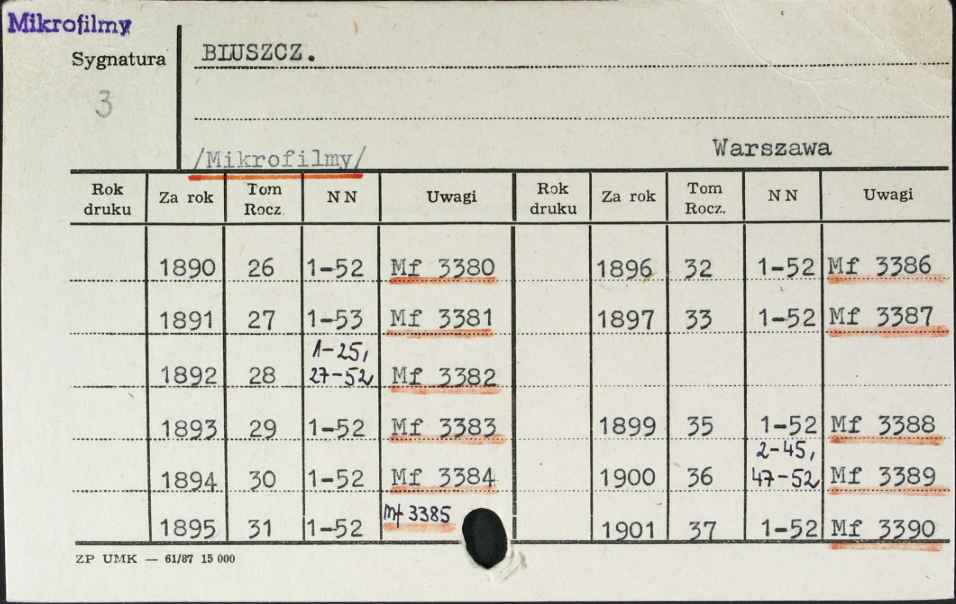 Mikrofilmy
Sygnatura
BLUSZCZ.
3
Warszawa
/Mikrofilmy/
Rok druku Za rok Tom Rocz. NN Uwagi Rok druku Za rok Tom Rocz. NN Uwagi
1890 26 1-52 Mf 3380 1896 32 1-52 Mf 3386
1891 27 1-53 Mf 3381 1897 33 1-52 Mf 3387
1892 28 1-25, 27-52 Mf 3382
1893 29 1-52 Mf 3383 1899 35 1-52 Mf 3388
1894 30 1-52 Mf 3384 1900 36 2-45, 47-52 Mf 3389
1895 31 1-52 Mf 3385 1901 37 1-52 Mf 3390
ZP UMK — 61/87 15 000